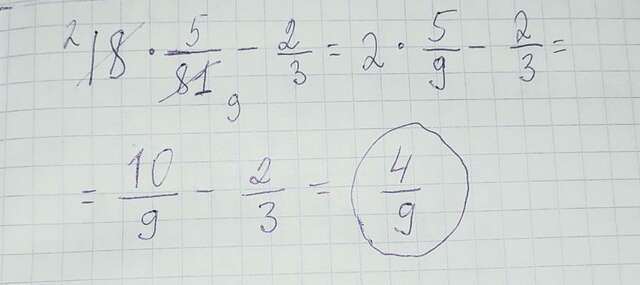 2 18 · 5/81 9 - 2/3 = 2 · 5/9 - 2/3 =
= 10/9 - 2/3 = 4/9